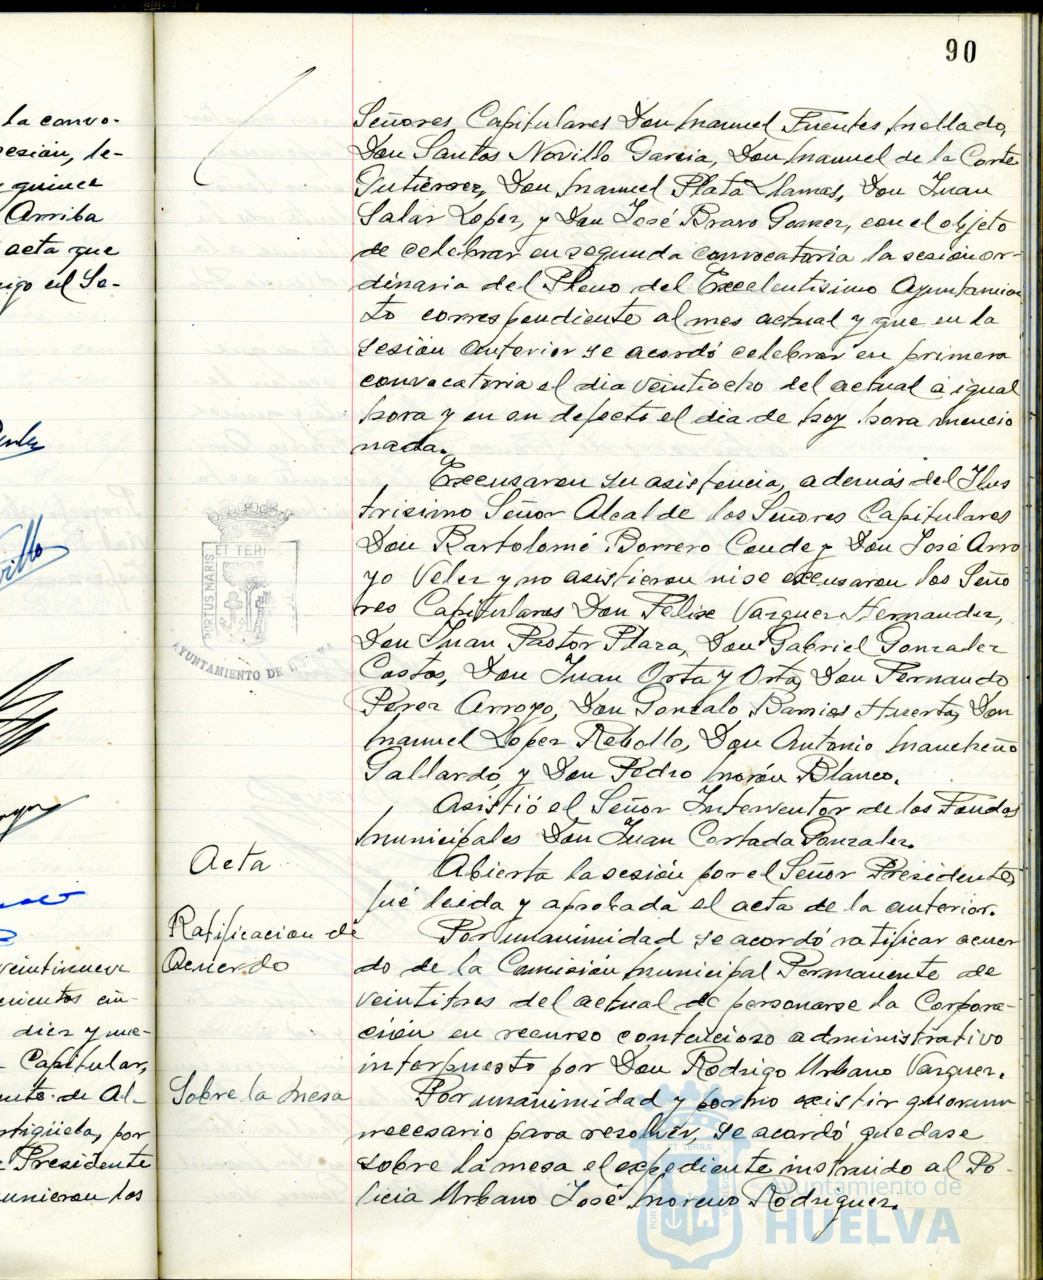 90
la convo-
sesión, le-
y quince
Arriba
acta que
Señores Capitulares Don Manuel Fuentes Mellado,
Don Santos Novillo Garcia, Don Manuel de la Corte
Gutierrez, Don Manuel Plata Llamas, Don Juan
Salar Lopez, y Don José Bravo Gomez, con el objeto
de celebrar en segunda convocatoria la sesion or-
dinaria del Pleno del Excelentisimo Ayuntamien
to correspondiente al mes actual y que en la
sesión anterior se acordó celebrar en primera
convocatoria el dia veintiocho del actual a igual
hora y en su defecto el dia de hoy hora mencio
nada.
Excusaron su asistencia, ademas del Ilus
trisimo Señor Alcalde los Señores Capitulares
Don Bartolomé Borrero Conde y Don José Arro
yo Velez y no asistieron ni se excusaron los Seño
res Capitulares Don Felix Vazquez Hernandez,
Don Juan Pastor Plaza, Don Gabriel Gonzalez
Costos, Don Juan Orta y Orta, Don Fernando
Perez Arroyo, Don Gonzalo Barrios Huerta, Don
Manuel Lopez Rebollo, Don Antonio Mancheño
Gallardo, y Don Pedro Morón Blanco.
Asistió el Señor Interventor de los Fondos
Municipales Don Juan Cortada Gonzalez.
Acta
Abierta la sesión por el Señor Presidente,
fué leida y aprobada el acta de la anterior.
Ratificacion de
Acuerdo
Por unanimidad se acordó ratificar acuer
do de la Comisión Municipal Permanente de
veintitres del actual de personarse la Corpora-
ción en recurso contencioso administrativo
interpuesto por Don Rodrigo Urbano Vazquez.
Sobre la mesa
Por unanimidad y por no existir quorum
necesario para resolver, se acordó quedase
sobre la mesa el expediente instruido al Po-
licia Urbano José Moreno Rodriguez.
veintinueve
diez y nue-
Capitular,
de Al-
por
Presidente
los
PORTUS MARIS ET TERRE
AYUNTAMIENTO DE HUELVA
Ayuntamiento de
HUELVA